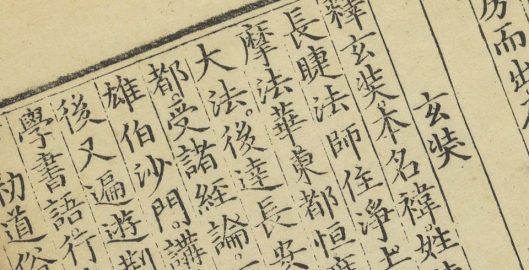 房而出
玄奘
釋玄奘。本名禕。姓
長睫法師住淨土
摩法華東都恒度
大法。後達長安
都。受諸經論。一
雄伯沙門。講
後又遍遊荆
學書語。行
道俗